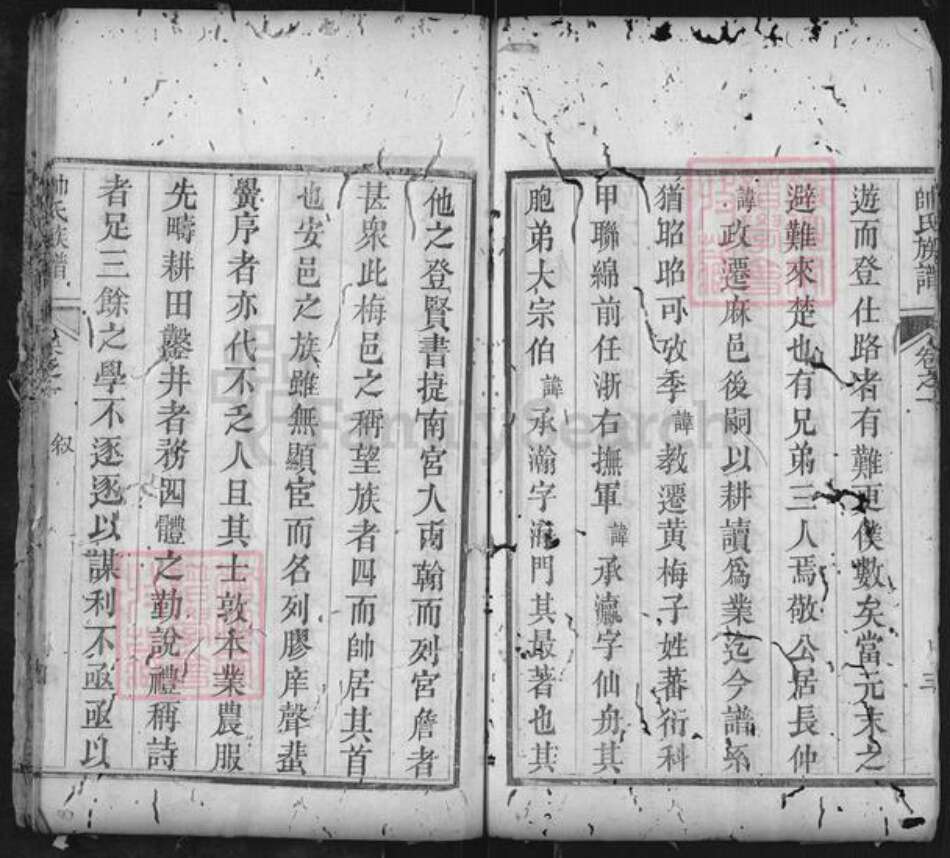 帥氏族譜
卷之一
三
遊而登仕路者有難更僕數矣當元末之
避難來楚也有兄弟三人焉敬公居長仲
諱政遷麻邑後嗣以耕讀為業迄今譜系
猶昭昭可攷季諱教遷黄梅子姓蕃衍科
甲聯綿前任浙右撫軍諱承瀛字仙舟其
胞弟大宗伯諱承瀚字海門其最著也其
他之登賢書捷南宮入南翰而列宮詹者
甚衆此梅邑之稱望族者四而帥居其首
也安邑之族雖無顯宦而名列膠庠聲蜚
黌序者亦代不乏人且其士敦本業農服
先疇耕田鑿井者務四體之勤說禮稱詩
者足三餘之學不逐逐以謀利不亟亟以
帥氏族譜
卷之一
叙
FamilySearch